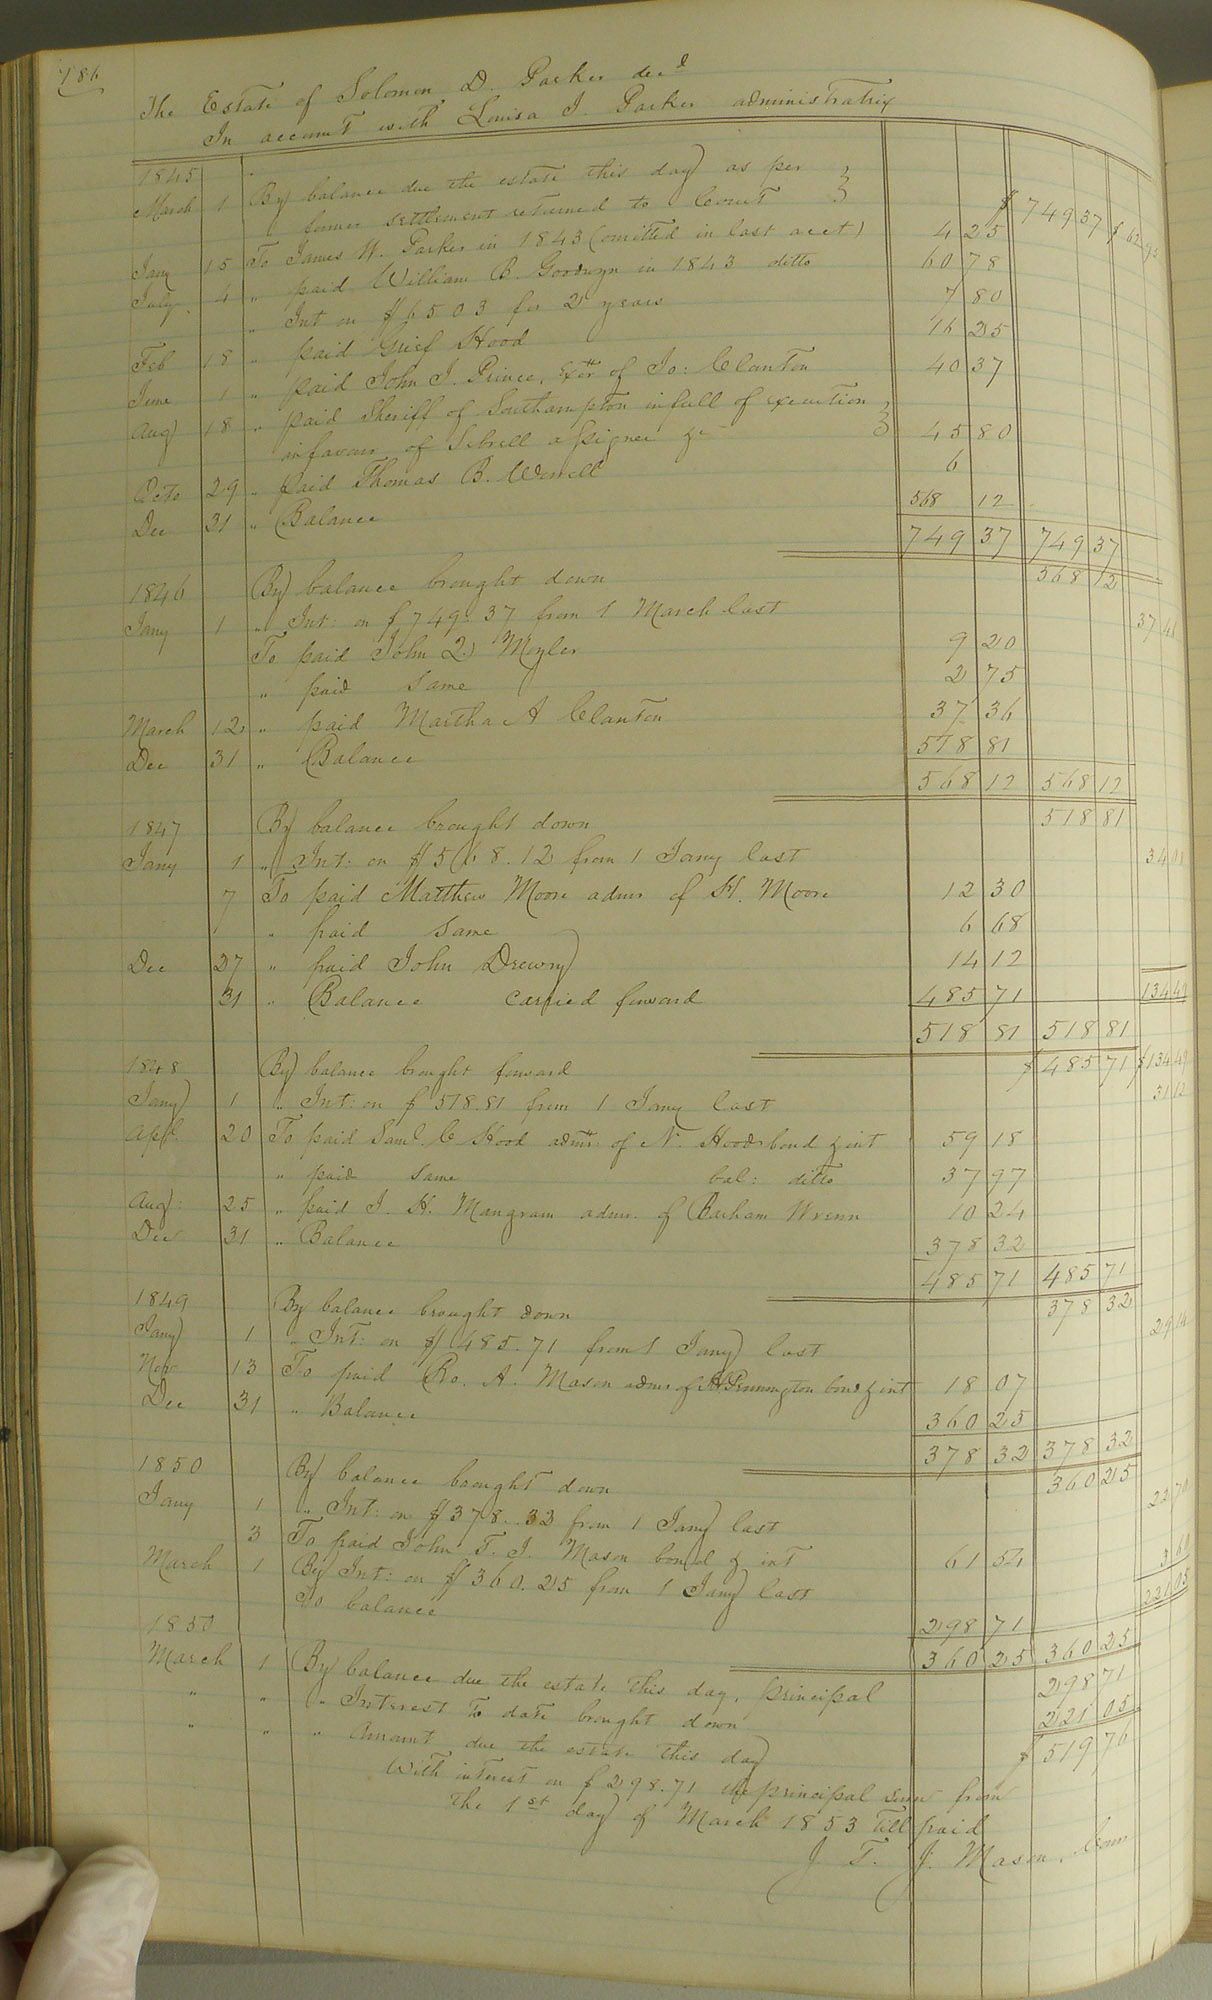 186
The Estate of Solomon D. Parker decd
In account with Louisa J. Parker administratrix
1845
March 1 By balance due the estate this day as per
former settlement returned to Court $ 749 37 $ 62 93
Jany 15 To James W. Parker in 1843 (omitted in last acct) 4 25
July 4 " paid William B. Goodwyn in 1843 ditto 60 78
" Int on $65 03 for 2 years 7 80
Feb 18 " paid Grief Hood 16 25
June 1 " paid John J. Prince, Exr of Jo: Clanton 40 37
Aug 18 " paid Sheriff of Southampton in full of execution
in favour of Sebrell assignee &c 45 80
Octo 29 " paid Thomas B. Worrell 6
Dec 31 " Balance 568 12
749 37 749 37
1846 By balance brought down 568 12
Jany 1 " Int: on $749.37 from 1 March last 37 48
To paid John Q Moyler 9 20
" paid same 2 75
March 12 " paid Martha A Clanton 37 36
Dec 31 " Balance 518 81
568 12 568 12
1847 By balance brought down 518 81
Jany 1 " Int: on $568.12 from 1 Jany last 34
7 To paid Matthew Moore admr of H. Moore 12 30
" paid same 6 68
Dec 27 " paid John Drewry 14 12
31 " Balance carried forward 485 71 134 49
518 81 518 81
1848 By balance brought forward $ 485 71 $134 49
Jany 1 " Int: on $ 518.81 from 1 Jany last 31 12
Apl 20 To paid Saml. C Hood admr: of N. Hoods bond & int 59 18
" paid same bal: ditto 37 97
Aug: 25 " paid J. H. Mangram admr. of Barham Wrenn 10 24
Dec 31 " Balance 378 32
485 71 485 71
1849 By balance brought down 378 32
Jany 1 " Int: on $485.71 from 1 Jany last 29 14
Nov 13 To paid Ro. A. Mason admr of Pennington bond & int 18 07
Dec 31 " Balance 360 25
378 32 378 32
1850 By balance brought down 360 25
Jany 1 " Int: on $378.32 from 1 Jany last 22 70
3 To paid John T. J. Mason bond & int 61 54
March 1 By Int: on $360.25 from 1 Jany last 3 60
To balance 298 71 221 05
1850 360 25 360 25
March 1 By balance due the estate this day, principal 298 71
" " " Interest to date brought down 221 05
" " " Amount due the estate this day $ 519 76
With interest on $298.71 the principal sum from
the 1st day of March 1853 till paid
J. T. J. Mason, Com